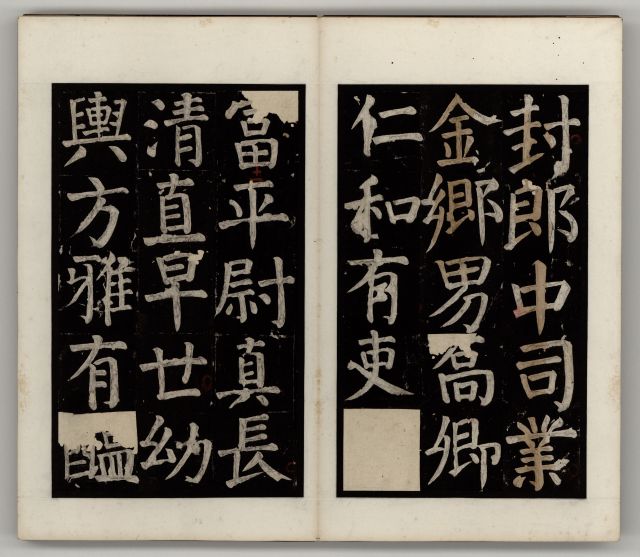 封郎中司業
金鄉男喬卿
仁和有吏
富平尉真長
清直早世幼
輿方雅有醖